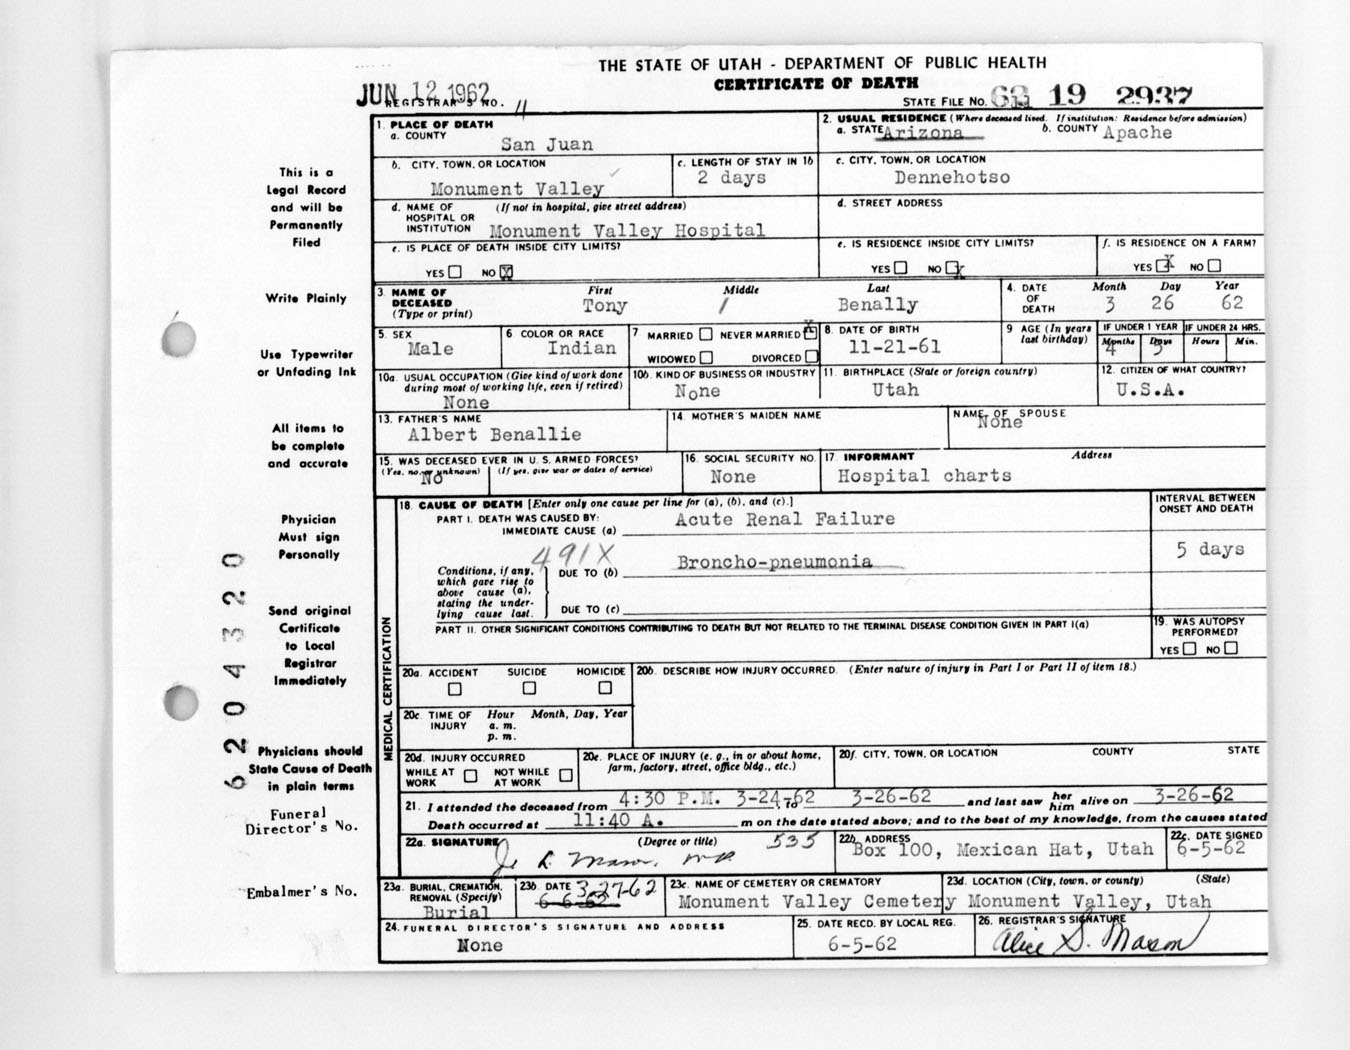 THE STATE OF UTAH - DEPARTMENT OF PUBLIC HEALTH
CERTIFICATE OF DEATH
JUN 12 1962
REGISTRAR'S NO. 11
STATE FILE NO. 62 19 2937
1. PLACE OF DEATH
a. COUNTY
San Juan
2. USUAL RESIDENCE (Where deceased lived. If institution: Residence before admission)
a. STATE Arizona b. COUNTY Apache
b. CITY, TOWN, OR LOCATION
Monument Valley
c. LENGTH OF STAY IN 1b
2 days
c. CITY, TOWN, OR LOCATION
Dennehotso
d. NAME OF HOSPITAL OR INSTITUTION (If not in hospital, give street address)
Monument Valley Hospital
d. STREET ADDRESS
e. IS PLACE OF DEATH INSIDE CITY LIMITS?
YES NO X
e. IS RESIDENCE INSIDE CITY LIMITS?
YES NO X
f. IS RESIDENCE ON A FARM?
YES X NO
3. NAME OF DECEASED (Type or print)
First Middle Last
Tony / Benally
4. DATE OF DEATH
Month Day Year
3 26 62
5. SEX
Male
6 COLOR OR RACE
Indian
7 MARRIED NEVER MARRIED X
WIDOWED DIVORCED
8. DATE OF BIRTH
11-21-61
9 AGE (In years last birthday)
IF UNDER 1 YEAR IF UNDER 24 HRS.
Months Days Hours Min.
4 5
10a. USUAL OCCUPATION (Give kind of work done during most of working life, even if retired)
None
10b. KIND OF BUSINESS OR INDUSTRY
None
11. BIRTHPLACE (State or foreign country)
Utah
12. CITIZEN OF WHAT COUNTRY?
U.S.A.
13. FATHER'S NAME
Albert Benallie
14. MOTHER'S MAIDEN NAME
NAME OF SPOUSE
None
15. WAS DECEASED EVER IN U. S. ARMED FORCES?
(Yes, no, or unknown) (If yes, give war or dates of service)
No
16. SOCIAL SECURITY NO.
None
17. INFORMANT Address
Hospital charts
18. CAUSE OF DEATH [Enter only one cause per line for (a), (b), and (c).]
PART I. DEATH WAS CAUSED BY:
IMMEDIATE CAUSE (a) Acute Renal Failure
INTERVAL BETWEEN ONSET AND DEATH
491X
Conditions, if any, which gave rise to above cause (a), stating the underlying cause last.
DUE TO (b) Broncho-pneumonia
5 days
DUE TO (c)
PART II. OTHER SIGNIFICANT CONDITIONS CONTRIBUTING TO DEATH BUT NOT RELATED TO THE TERMINAL DISEASE CONDITION GIVEN IN PART I(a)
19. WAS AUTOPSY PERFORMED?
YES NO
MEDICAL CERTIFICATION
20a. ACCIDENT SUICIDE HOMICIDE
20b. DESCRIBE HOW INJURY OCCURRED. (Enter nature of injury in Part I or Part II of item 18.)
20c. TIME OF INJURY Hour Month, Day, Year
a. m.
p. m.
20d. INJURY OCCURRED
WHILE AT WORK NOT WHILE AT WORK
20e. PLACE OF INJURY (e. g., in or about home, farm, factory, street, office bldg., etc.)
20f. CITY, TOWN, OR LOCATION COUNTY STATE
21. I attended the deceased from 4:30 P.M. 3-24-62, to 3-26-62 and last saw her him alive on 3-26-62
Death occurred at 11:40 A. m on the date stated above; and to the best of my knowledge, from the causes stated
22a. SIGNATURE (Degree or title) 535
J. L. Mason, MD.
22b. ADDRESS
Box 100, Mexican Hat, Utah
22c. DATE SIGNED
6-5-62
23a. BURIAL, CREMATION, REMOVAL (Specify)
Burial
23b. DATE 3-27-62
6-6-62
23c. NAME OF CEMETERY OR CREMATORY
Monument Valley Cemetery
23d. LOCATION (City, town, or county) (State)
Monument Valley, Utah
24. FUNERAL DIRECTOR'S SIGNATURE AND ADDRESS
None
25. DATE RECD. BY LOCAL REG.
6-5-62
26. REGISTRAR'S SIGNATURE
Alice S. Mason
This is a
Legal Record
and will be
Permanently
Filed
Write Plainly
Use Typewriter
or Unfading Ink
All items to
be complete
and accurate
Physician
Must sign
Personally
Send original
Certificate
to Local
Registrar
Immediately
Physicians should
State Cause of Death
in plain terms
Funeral
Director's No.
Embalmer's No.
6 2 0 4 3 2 0